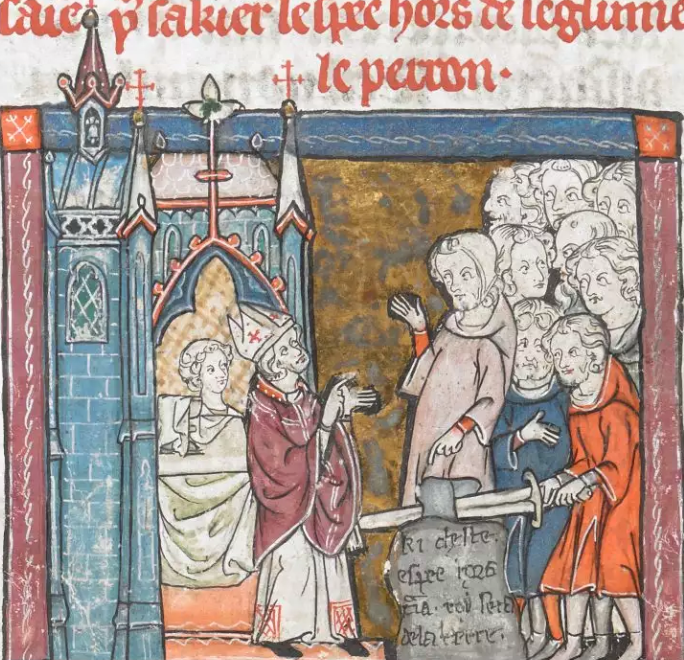 saier lespee hors de leglume
le perron.
ki ceste.
espee hors
t'ra. roi sera
dela terre.